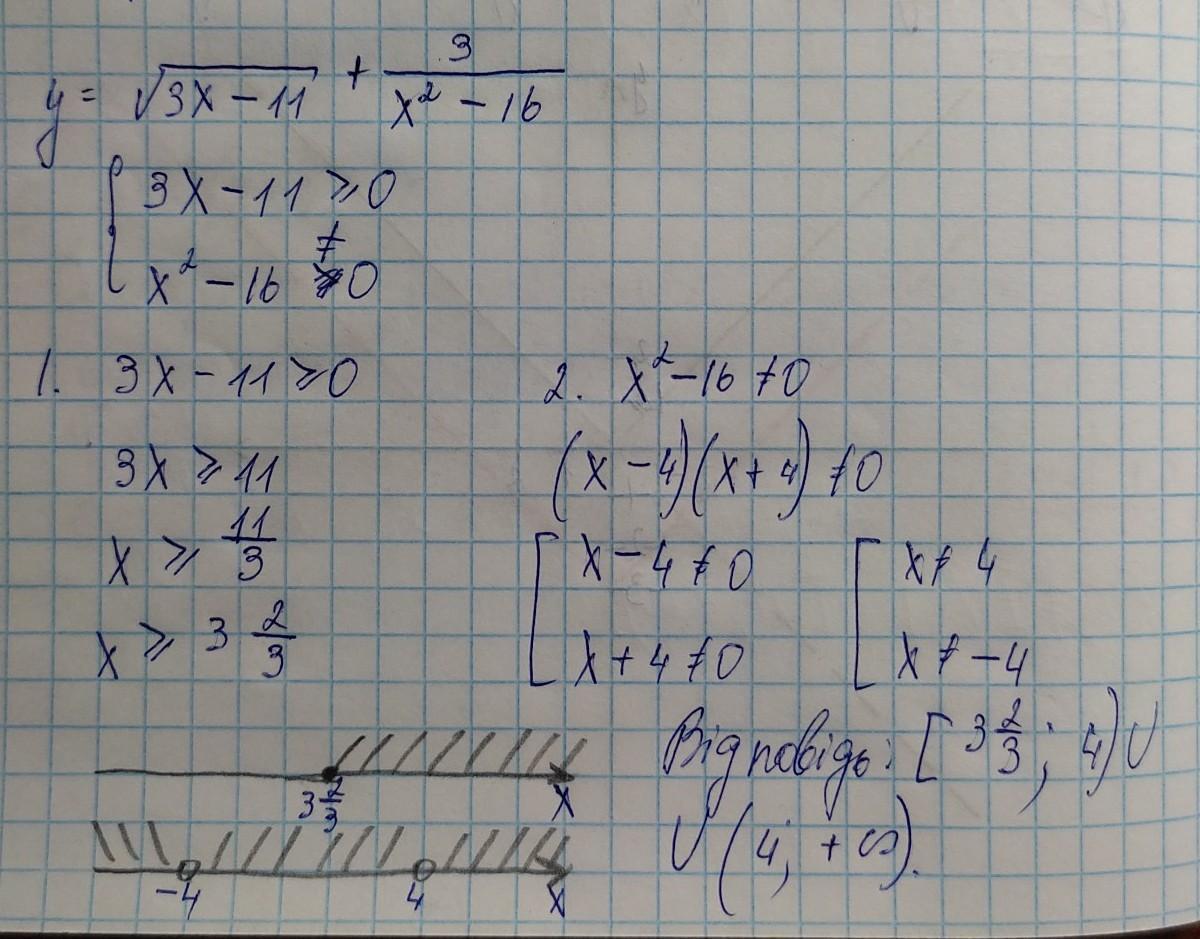 y = √(3x − 11) + 3/(x² − 16)
{ 3x − 11 ⩾ 0
x² − 16 ≠ 0
1. 3x − 11 ⩾ 0
3x ⩾ 11
x ⩾ 11/3
x ⩾ 3 2/3
2. x² − 16 ≠ 0
(x − 4)(x + 4) ≠ 0
[ x − 4 ≠ 0
x + 4 ≠ 0
[ x ≠ 4
x ≠ −4
3 2/3 x
−4 4 x
Відповідь: [3 2/3; 4) ∪
∪ (4; +∞).